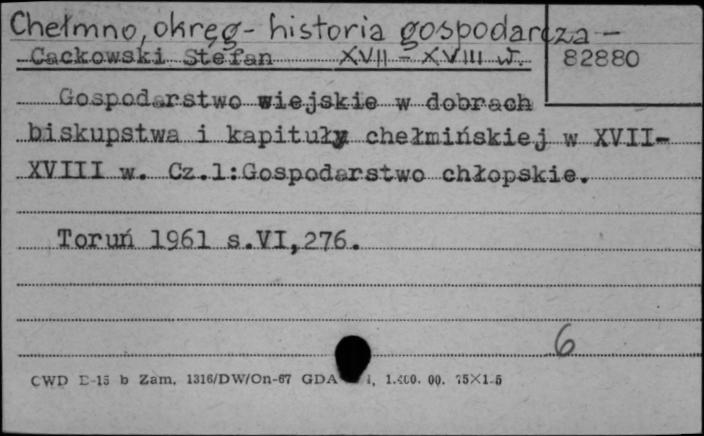 Chełmno, okręg - historia gospodarcza -
Cackowski Stefan XVII - XVIII w. 82880
Gospodarstwo wiejskie w dobrach
biskupstwa i kapituły chełmińskiej w XVII-
XVIII w. Cz.1:Gospodarstwo chłopskie.
Toruń 1961 s.VI,276.
6
CWD D-15 b Zam. 1316/DW/On-67 GDA